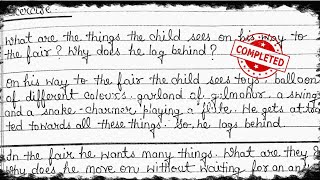 Exercise
What are the things the child sees on his way to
the fair? Why does he lag behind?
COMPLETED
On his way to the fair the child sees toys, balloon
of different colours. garland of gulmohur, a swing
and a snake-charmer playing a flute. He gets att
ted towards all these things. So, he lags behind.
In the fair he wants many things. What are they?
Why does he move on without waiting for an an